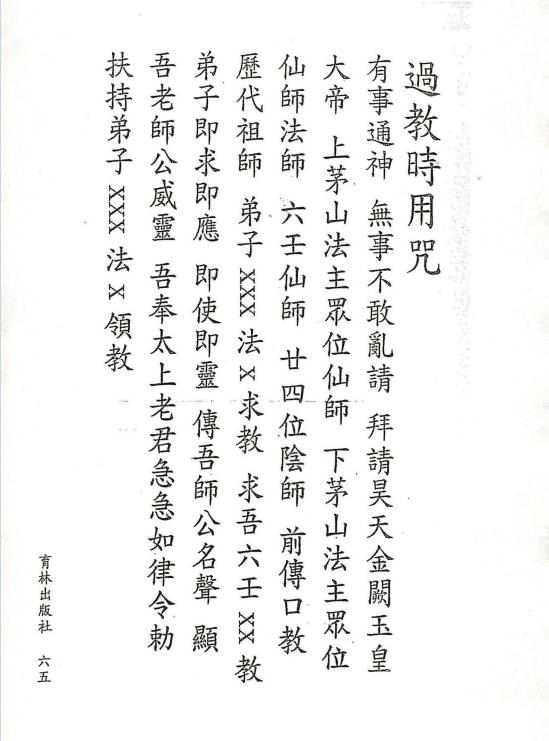 過教時用咒
有事通神 無事不敢亂請 拜請昊天金闕玉皇
大帝 上茅山法主眾位仙師 下茅山法主眾位
仙師法師 六壬仙師 廿四位陰師 前傳口教
歷代祖師 弟子XXX 法X求教 求吾六壬XX教
弟子即求即應 即使即靈 傳吾師公名聲 顯
吾老師公威靈 吾奉太上老君急急如律令勅
扶持弟子XXX 法X領教
育林出版社 六五